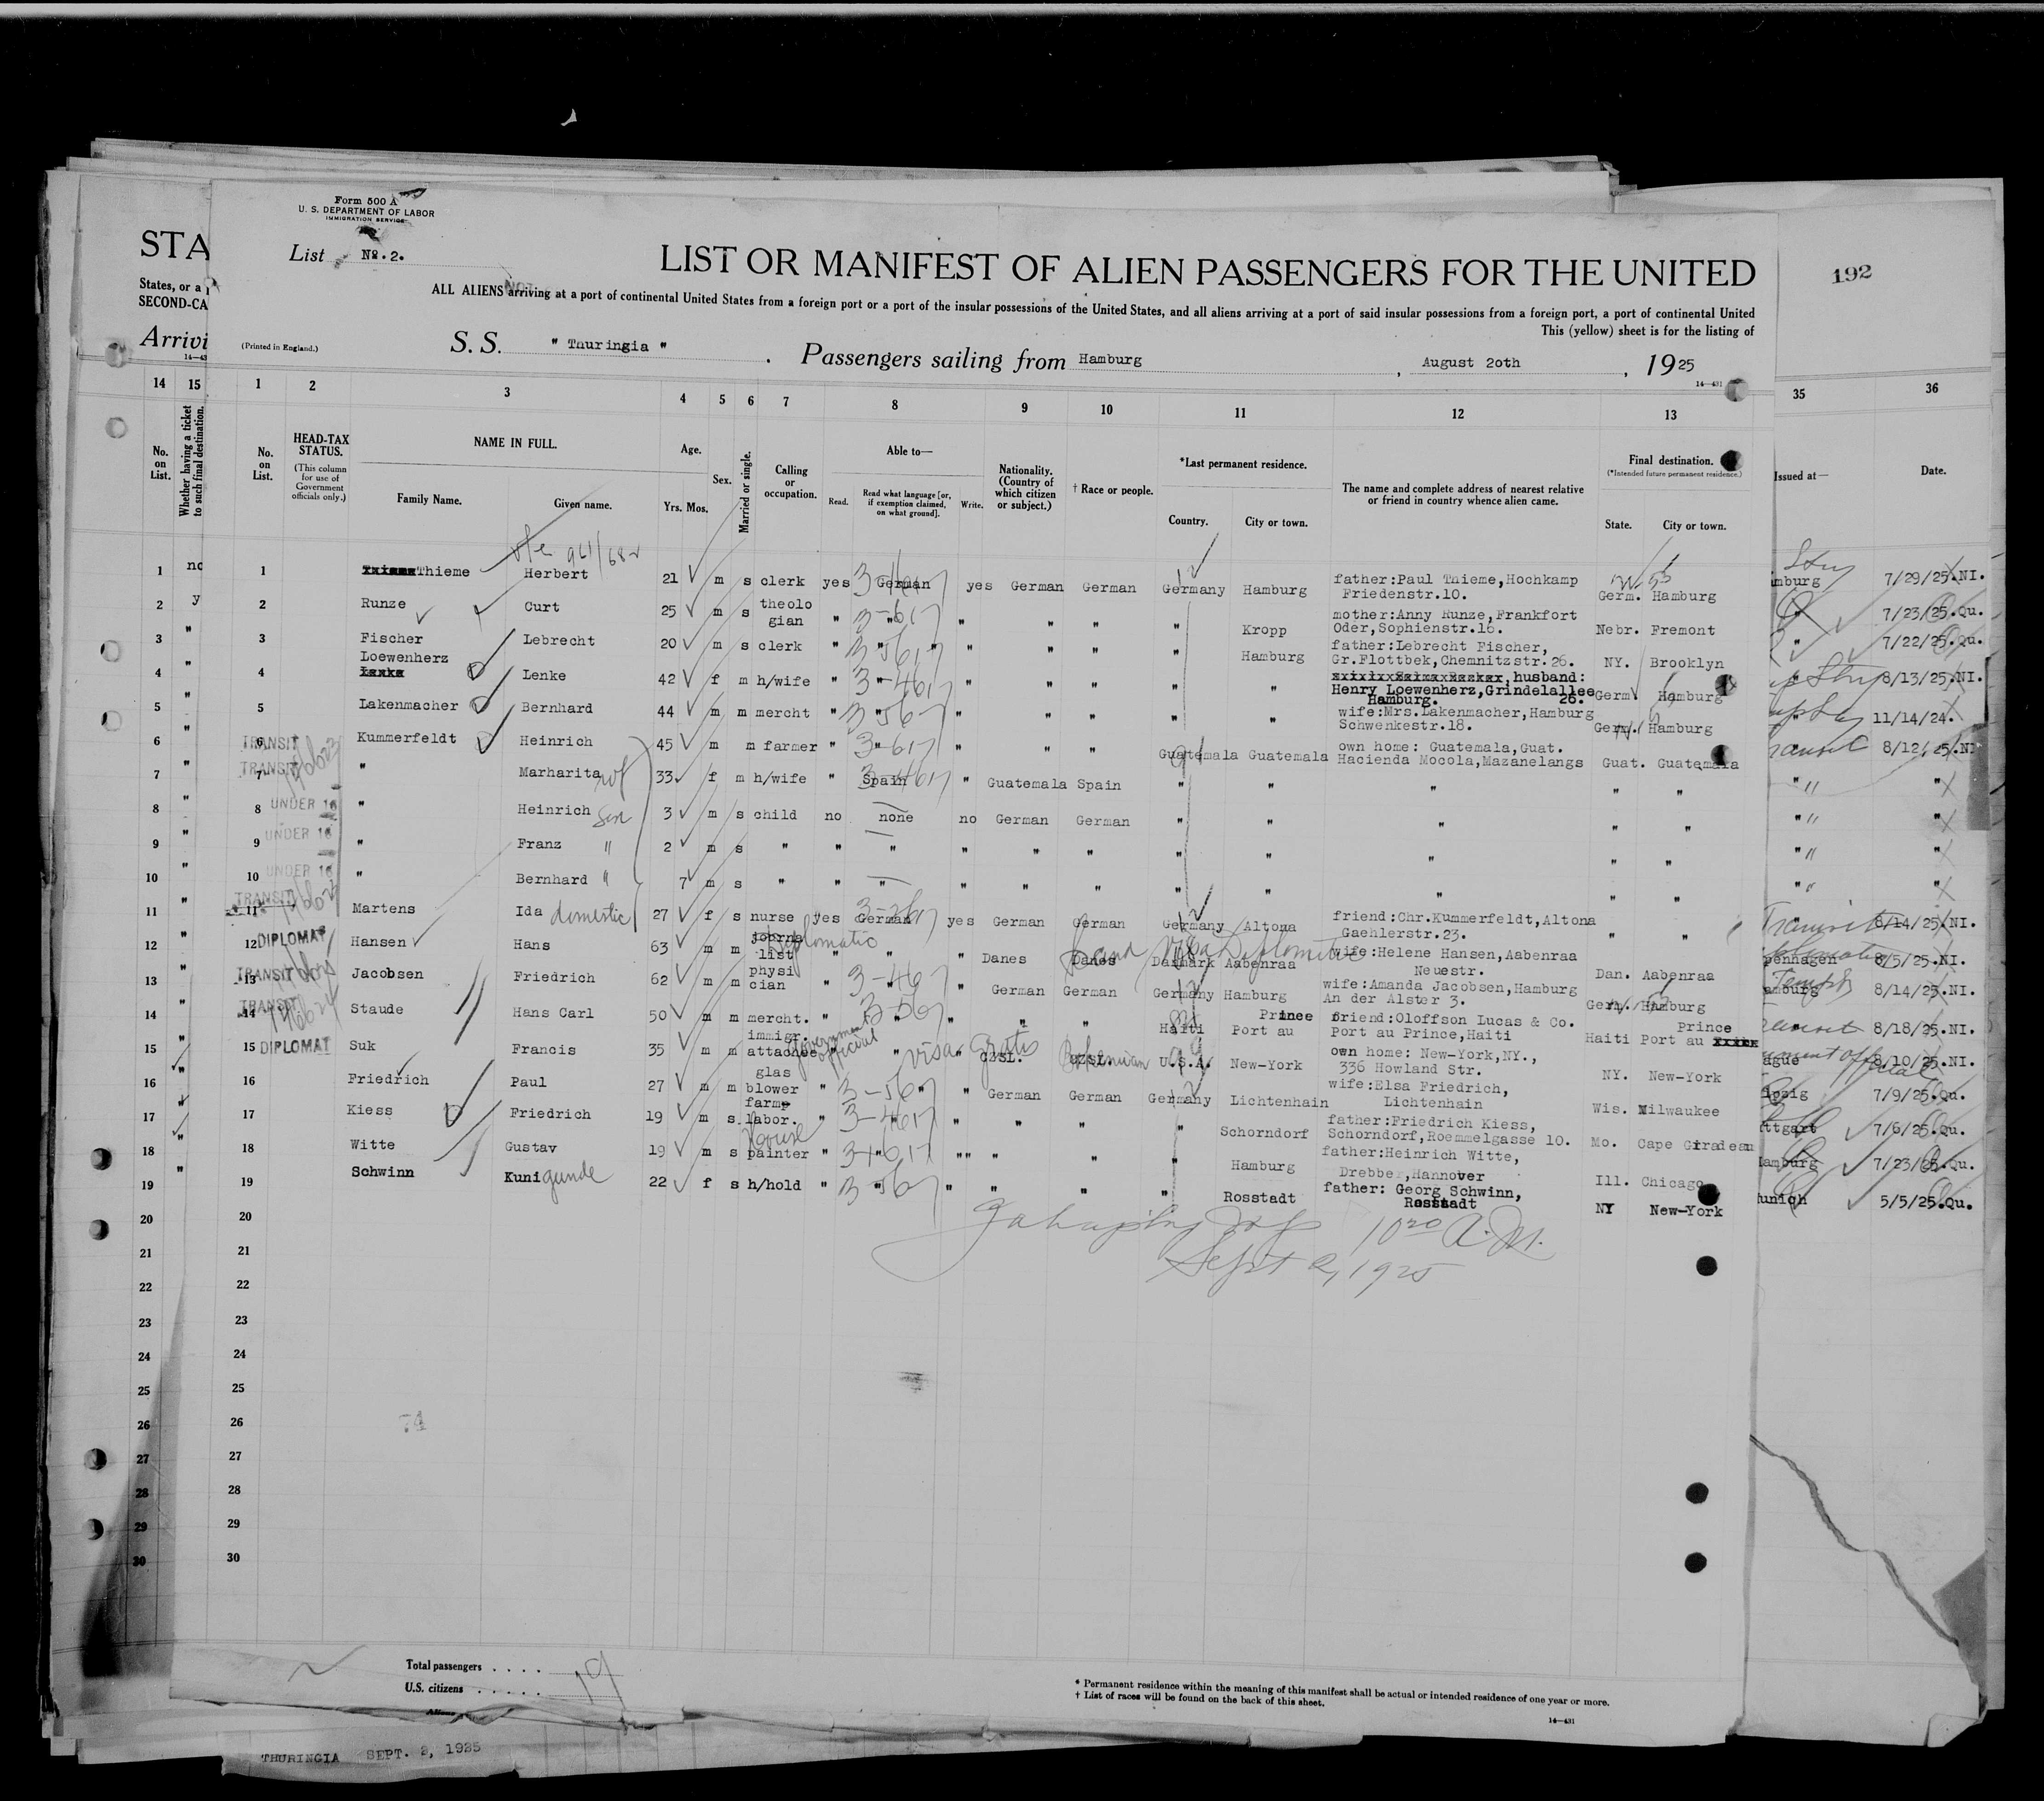 Form 500 A
U. S. DEPARTMENT OF LABOR
IMMIGRATION SERVICE
STA
List No. 2.
LIST OR MANIFEST OF ALIEN PASSENGERS FOR THE UNITED
192
States, or a
SECOND-CA
ALL ALIENS arriving at a port of continental United States from a foreign port or a port of the insular possessions of the United States, and all aliens arriving at a port of said insular possessions from a foreign port, a port of continental United
This (yellow) sheet is for the listing of
Arrivi
(Printed in England.)
S. S. " Thuringia " . Passengers sailing from Hamburg , August 20th , 1925
14—43
14—431
14 15 1 2 3 4 5 6 7 8 9 10 11 12 13 35 36
No. on List.
Whether having a ticket to such final destination.
No. on List.
HEAD-TAX STATUS.
(This column for use of Government officials only.)
NAME IN FULL.
Family Name. Given name.
Age.
Yrs. Mos.
Sex.
Married or single.
Calling or occupation.
Able to—
Read. Read what language [or, if exemption claimed, on what ground]. Write.
Nationality. (Country of which citizen or subject.)
† Race or people.
*Last permanent residence.
Country. City or town.
The name and complete address of nearest relative or friend in country whence alien came.
Final destination.
(*Intended future permanent residence.)
State. City or town.
Issued at—
Date.
1 no 1 Thieme Herbert 21 m s clerk yes German yes German German Germany Hamburg father:Paul Thieme,Hochkamp Friedenstr.10. Germ. Hamburg mburg 7/29/25.NI.
2 y 2 Runze Curt 25 m s theolo gian " " " " " " Kropp mother:Anny Runze,Frankfort Oder,Sophienstr.16. Nebr. Fremont 7/23/25.Qu.
3 " 3 Fischer Lebrecht 20 m s clerk " " " " " " Hamburg father:Lebrecht Fischer, Gr.Flottbek,Chemnitzstr.26. NY. Brooklyn " 7/22/25.Qu.
4 " 4 Loewenherz Lenke 42 f m h/wife " " " " " " " husband: Henry Loewenherz,Grindelallee 26. Hamburg. Germ Hamburg 8/13/25.NI.
5 " 5 Lakenmacher Bernhard 44 m m mercht " " " " " " " wife:Mrs.Lakenmacher,Hamburg Schwenkestr.18. Germ. Hamburg 11/14/24.
6 " TRANSIT 6 Kummerfeldt Heinrich 45 m m farmer " " " " " Guatemala Guatemala own home: Guatemala,Guat. Hacienda Mocola,Mazanelangs Guat. Guatemala 8/12/25.NI
7 " TRANSIT 7 " Marharita 33 f m h/wife " Spain " Guatemala Spain " " " " " " "
8 " 8 UNDER 16 " Heinrich son 3 m s child no none no German German " " " " " " "
9 " 9 UNDER 16 " Franz " 2 m s " " " " " " " " " " " " "
10 " 10 UNDER 16 " Bernhard " 7 m s " " " " " " " " " " " " "
11 " TRANSIT 11 Martens Ida domestic 27 f s nurse yes German yes German German Germany Altona friend:Chr.Kummerfeldt,Altona Gaehlerstr.23. " " Transit 8/14/25.NI.
12 " 12 DIPLOMAT Hansen Hans 63 m m journa list Diplomatic " " " Danes Danes Danmark Aabenraa wife:Helene Hansen,Aabenraa Neuestr. Dan. Aabenraa penhagen 8/5/25.NI.
13 " TRANSIT 13 Jacobsen Friedrich 62 m m physi cian " " German German Germany Hamburg wife:Amanda Jacobsen,Hamburg An der Alster 3. Germ. Hamburg amburg 8/14/25.NI.
14 " TRANSIT 14 Staude Hans Carl 50 m m mercht. " " " " " Haiti Port au Prince friend:Oloffson Lucas & Co. Port au Prince,Haiti Haiti Port au Prince 8/18/25.NI.
15 " 15 DIPLOMAT Suk Francis 35 m m immigr. attachee Government official " " visa gratis CZSL. CZSL. Bohemian U.S.A. New-York own home: New-York,NY., 336 Howland Str. NY. New-York ague 8/10/25.NI.
16 " 16 Friedrich Paul 27 m m glas blower " " " German German Germany Lichtenhain wife:Elsa Friedrich, Lichtenhain Wis. Milwaukee ipzig 7/9/25.Qu.
17 " 17 Kiess Friedrich 19 m s farm labor. " " " " " " Schorndorf father:Friedrich Kiess, Schorndorf,Roemmelgasse 10. Mo. Cape Giradeau ttgart 7/6/25.Qu.
18 " 18 Witte Gustav 19 m s House painter " " "" " " " Hamburg father:Heinrich Witte, Drebber,Hannover Ill. Chicago amburg 7/23/25.Qu.
19 " 19 Schwinn Kunigunde 22 f s h/hold " " " " " " Rosstadt father: Georg Schwinn, Rosstadt NY New-York unich 5/5/25.Qu.
20 20
10 20 A.M.
21 21
Sept 2, 1925
22 22
23 23
24 24
25 25
26 26
74
27 27
28 28
29 29
30 30
Total passengers . . . . 19
U.S. citizens . . . . .
* Permanent residence within the meaning of this manifest shall be actual or intended residence of one year or more.
† List of races will be found on the back of this sheet.
14—431
THURINGIA SEPT. 2, 1925